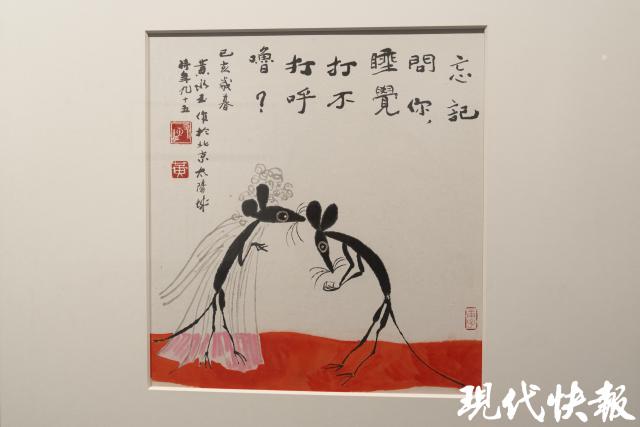 忘記
問你,
睡覺
打不
打呼
嚕？
己亥歲春
黄永玉作於北京太陽城
時年九十五
黄
現代快報